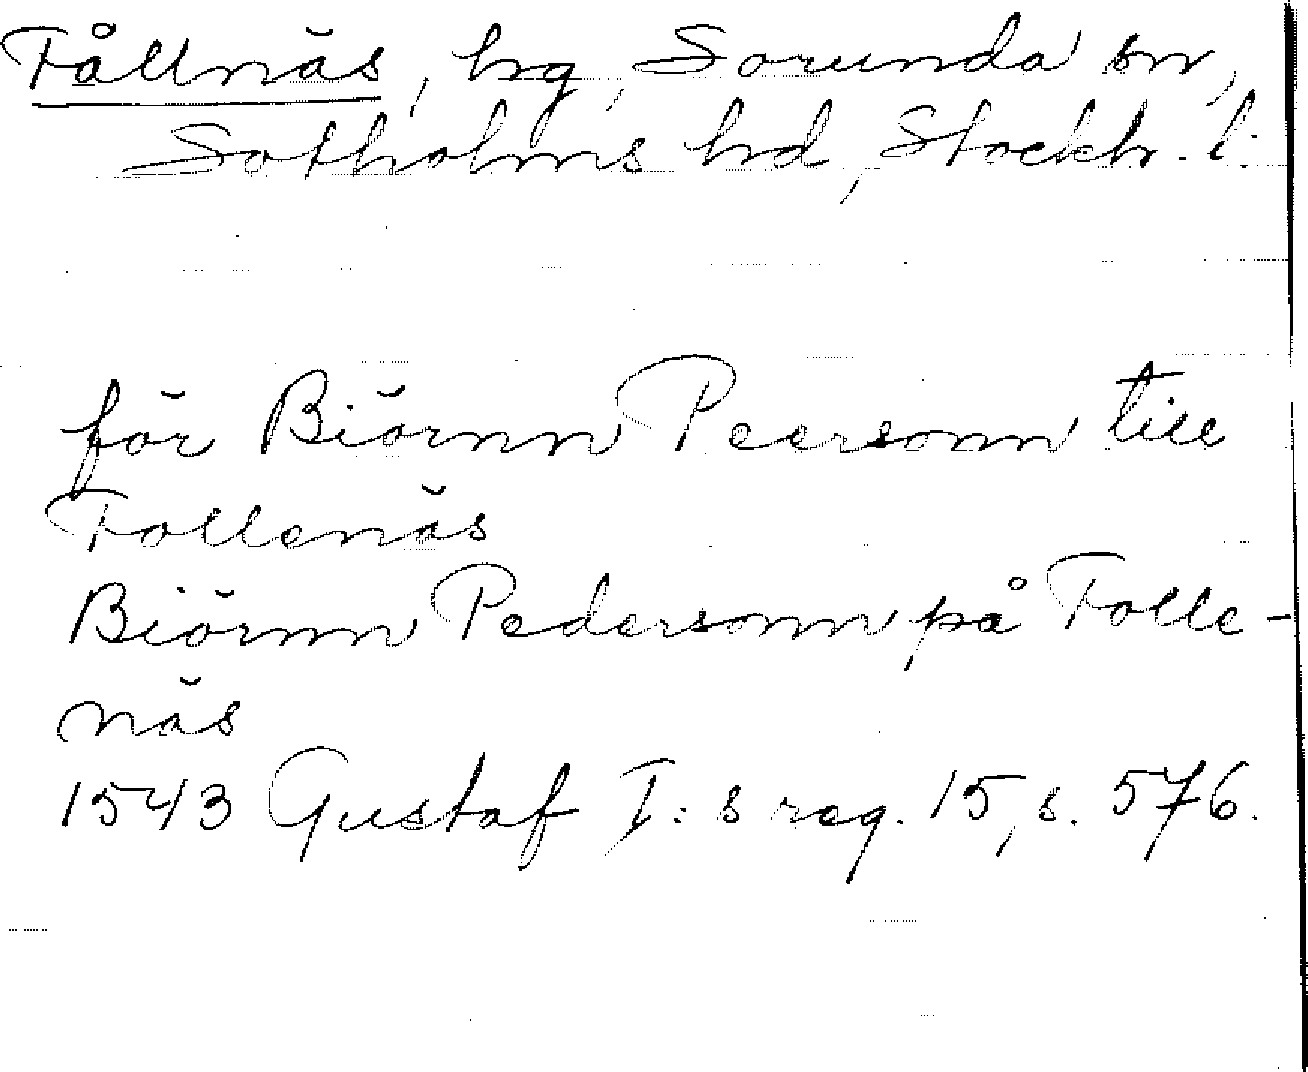 Fållnäs, hrg, Sorunda sn,
Sotholms hd, Stockh. l.
för Biörnn Peersonn till
Follenäs
Biörnn Pedersonn på Folle-
näs
1543 Gustaf I:s reg. 15, s. 576.